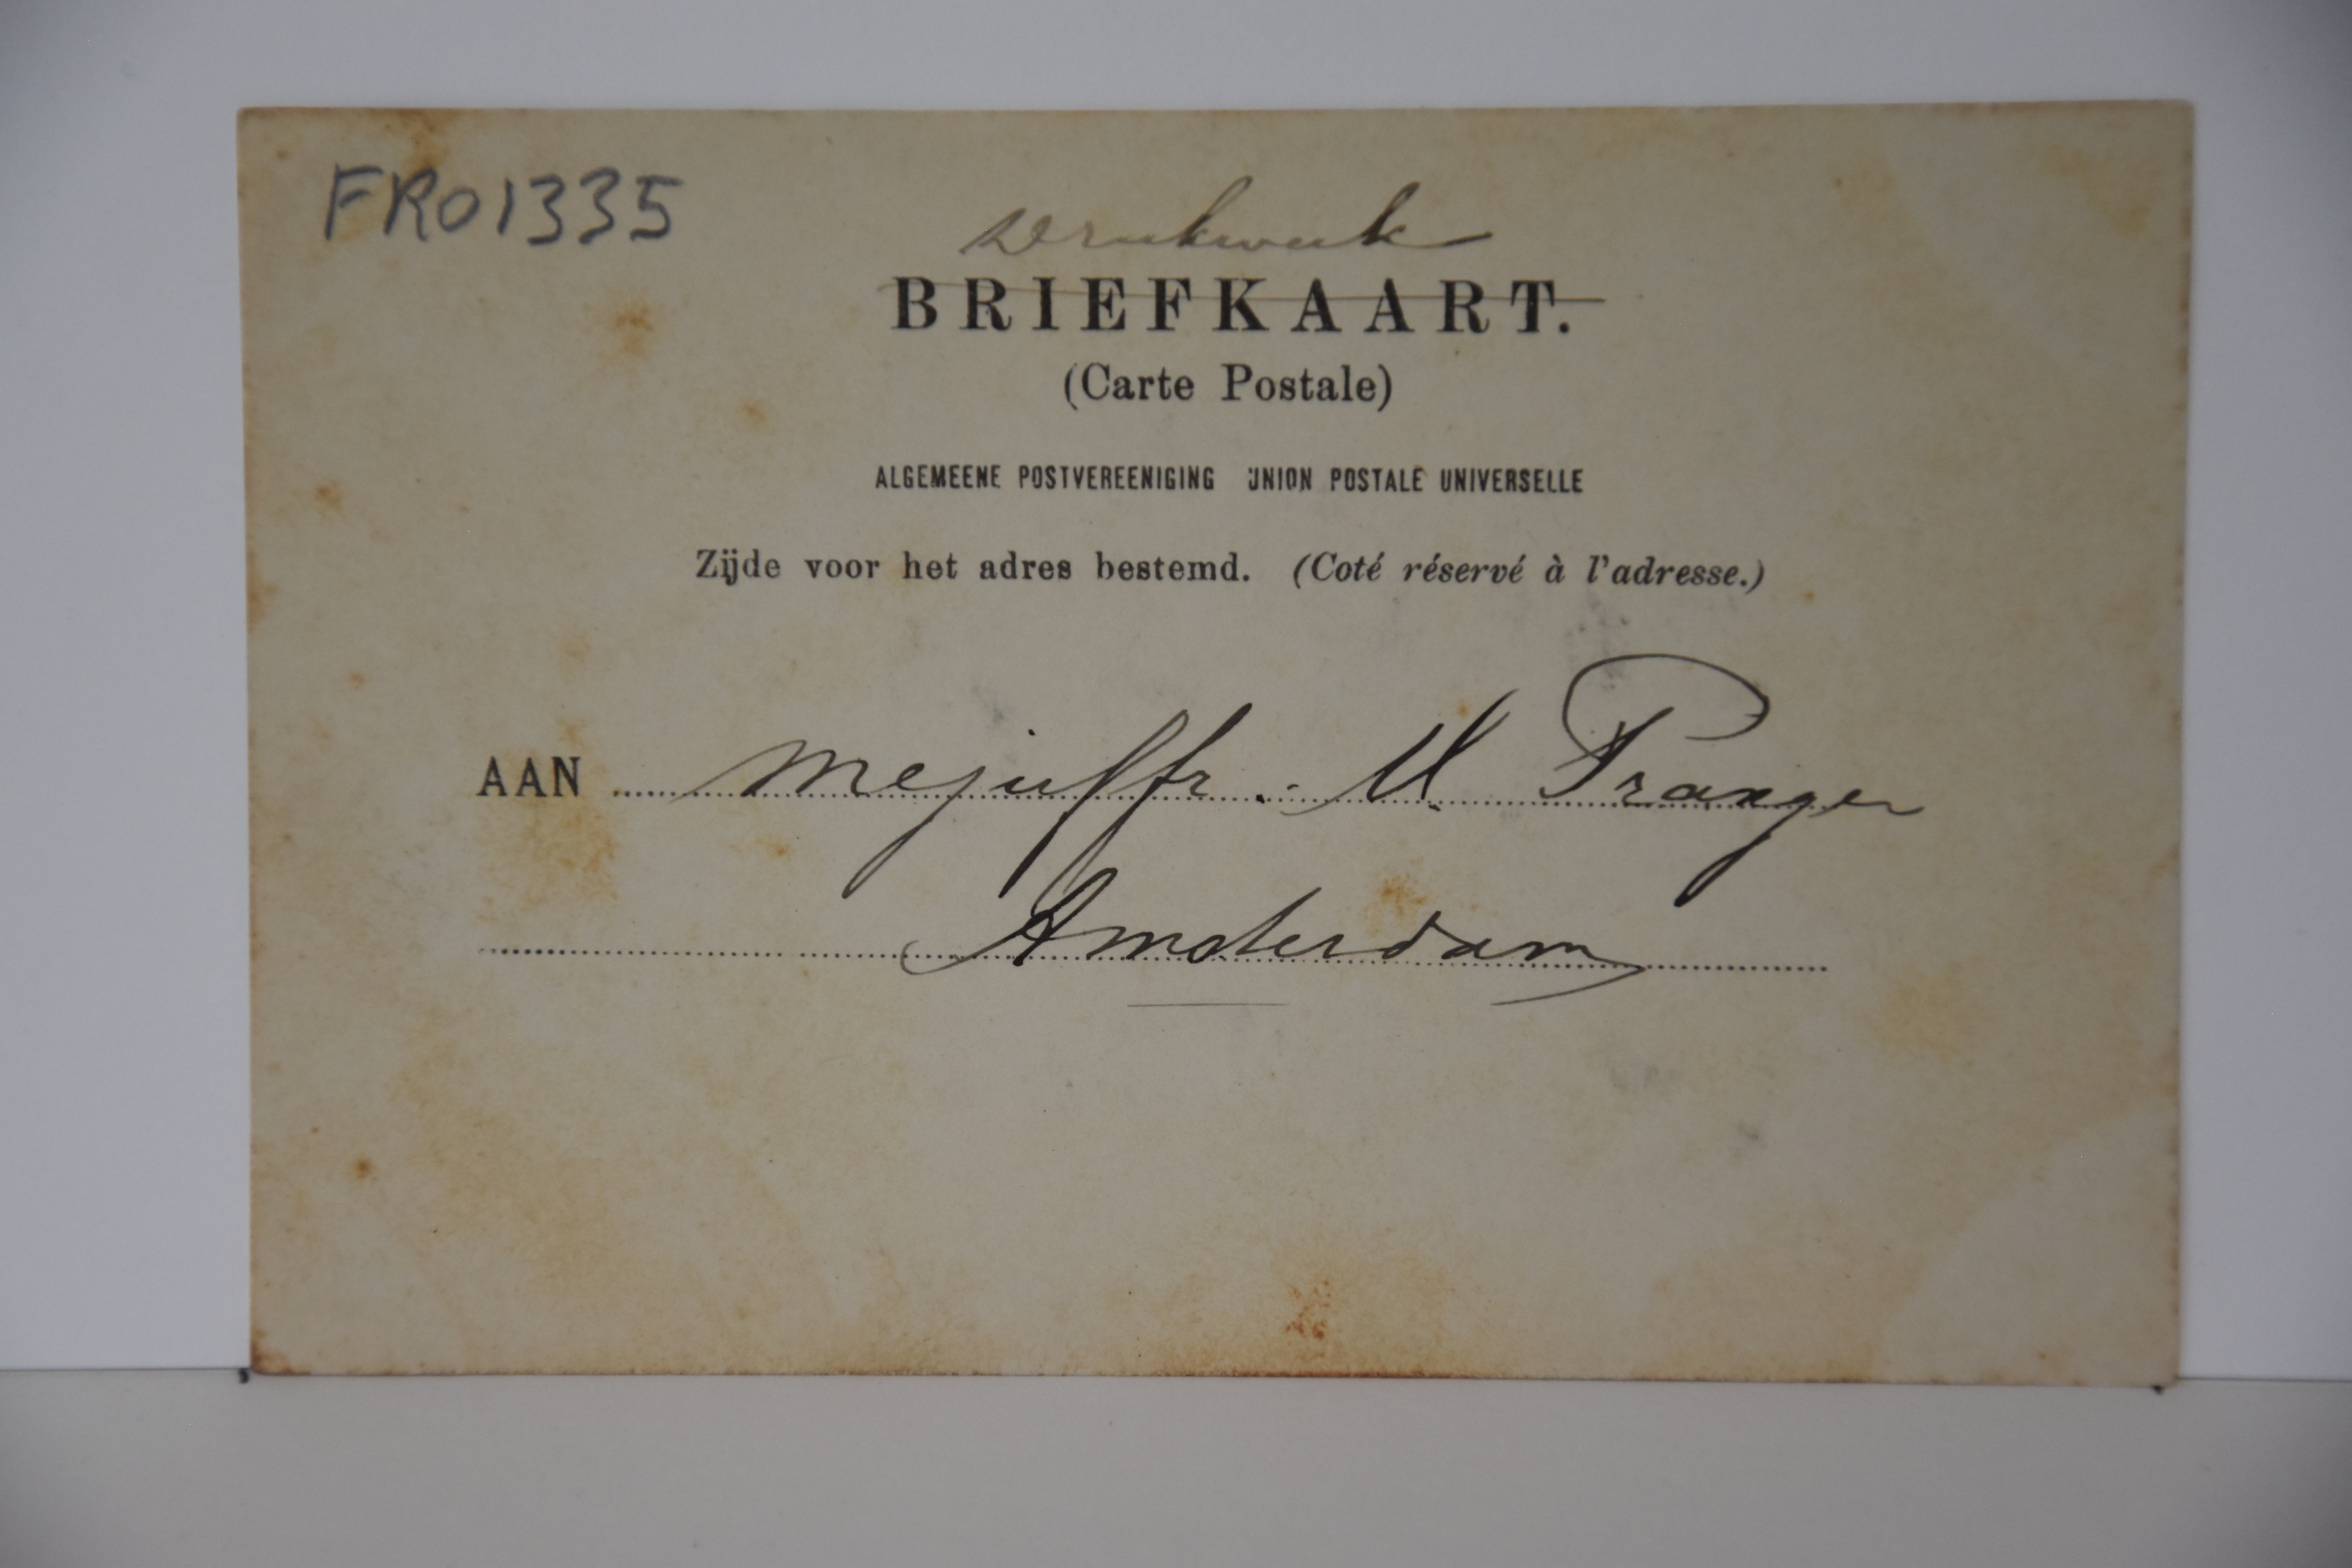 FRO1335
Drukwerk
BRIEFKAART.
(Carte Postale)
ALGEMEENE POSTVEREENIGING UNION POSTALE UNIVERSELLE
Zijde voor het adres bestemd. (Coté réservé à l'adresse.)
AAN Mejuffr. M Pranger
Amsterdam